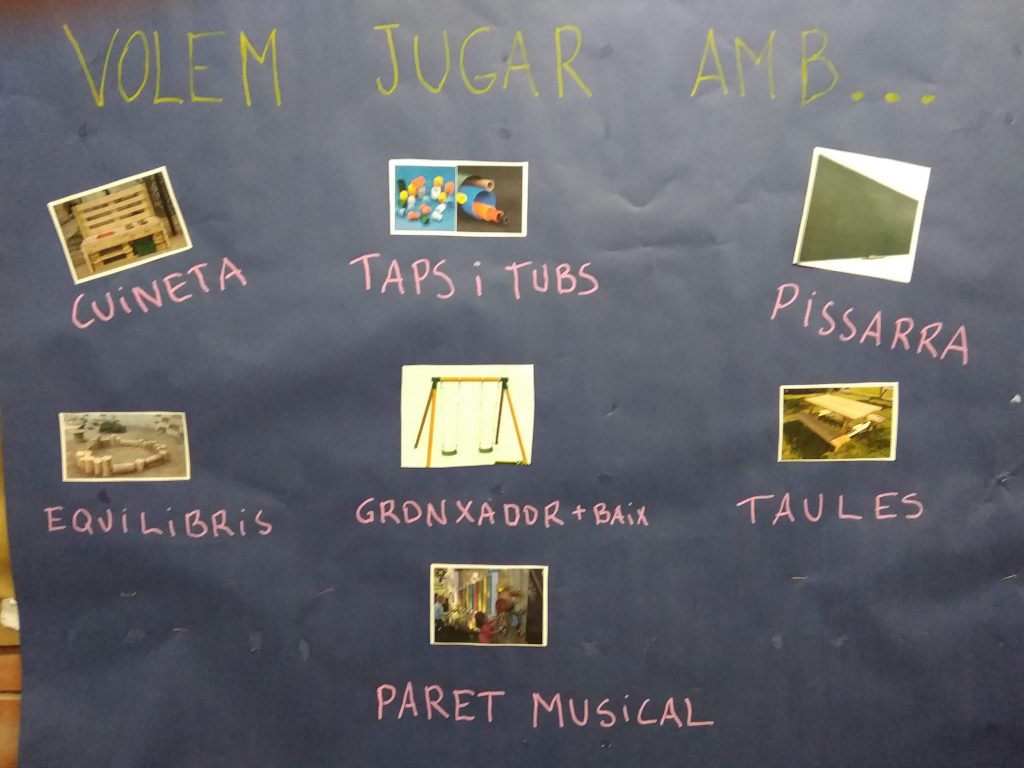 VOLEM JUGAR AMB...
CUiNETA
TAPS i TUBS
PiSSARRA
EQUiLiBRiS
GRONXADOR + BAiX
TAULES
PARET MUSiCAL